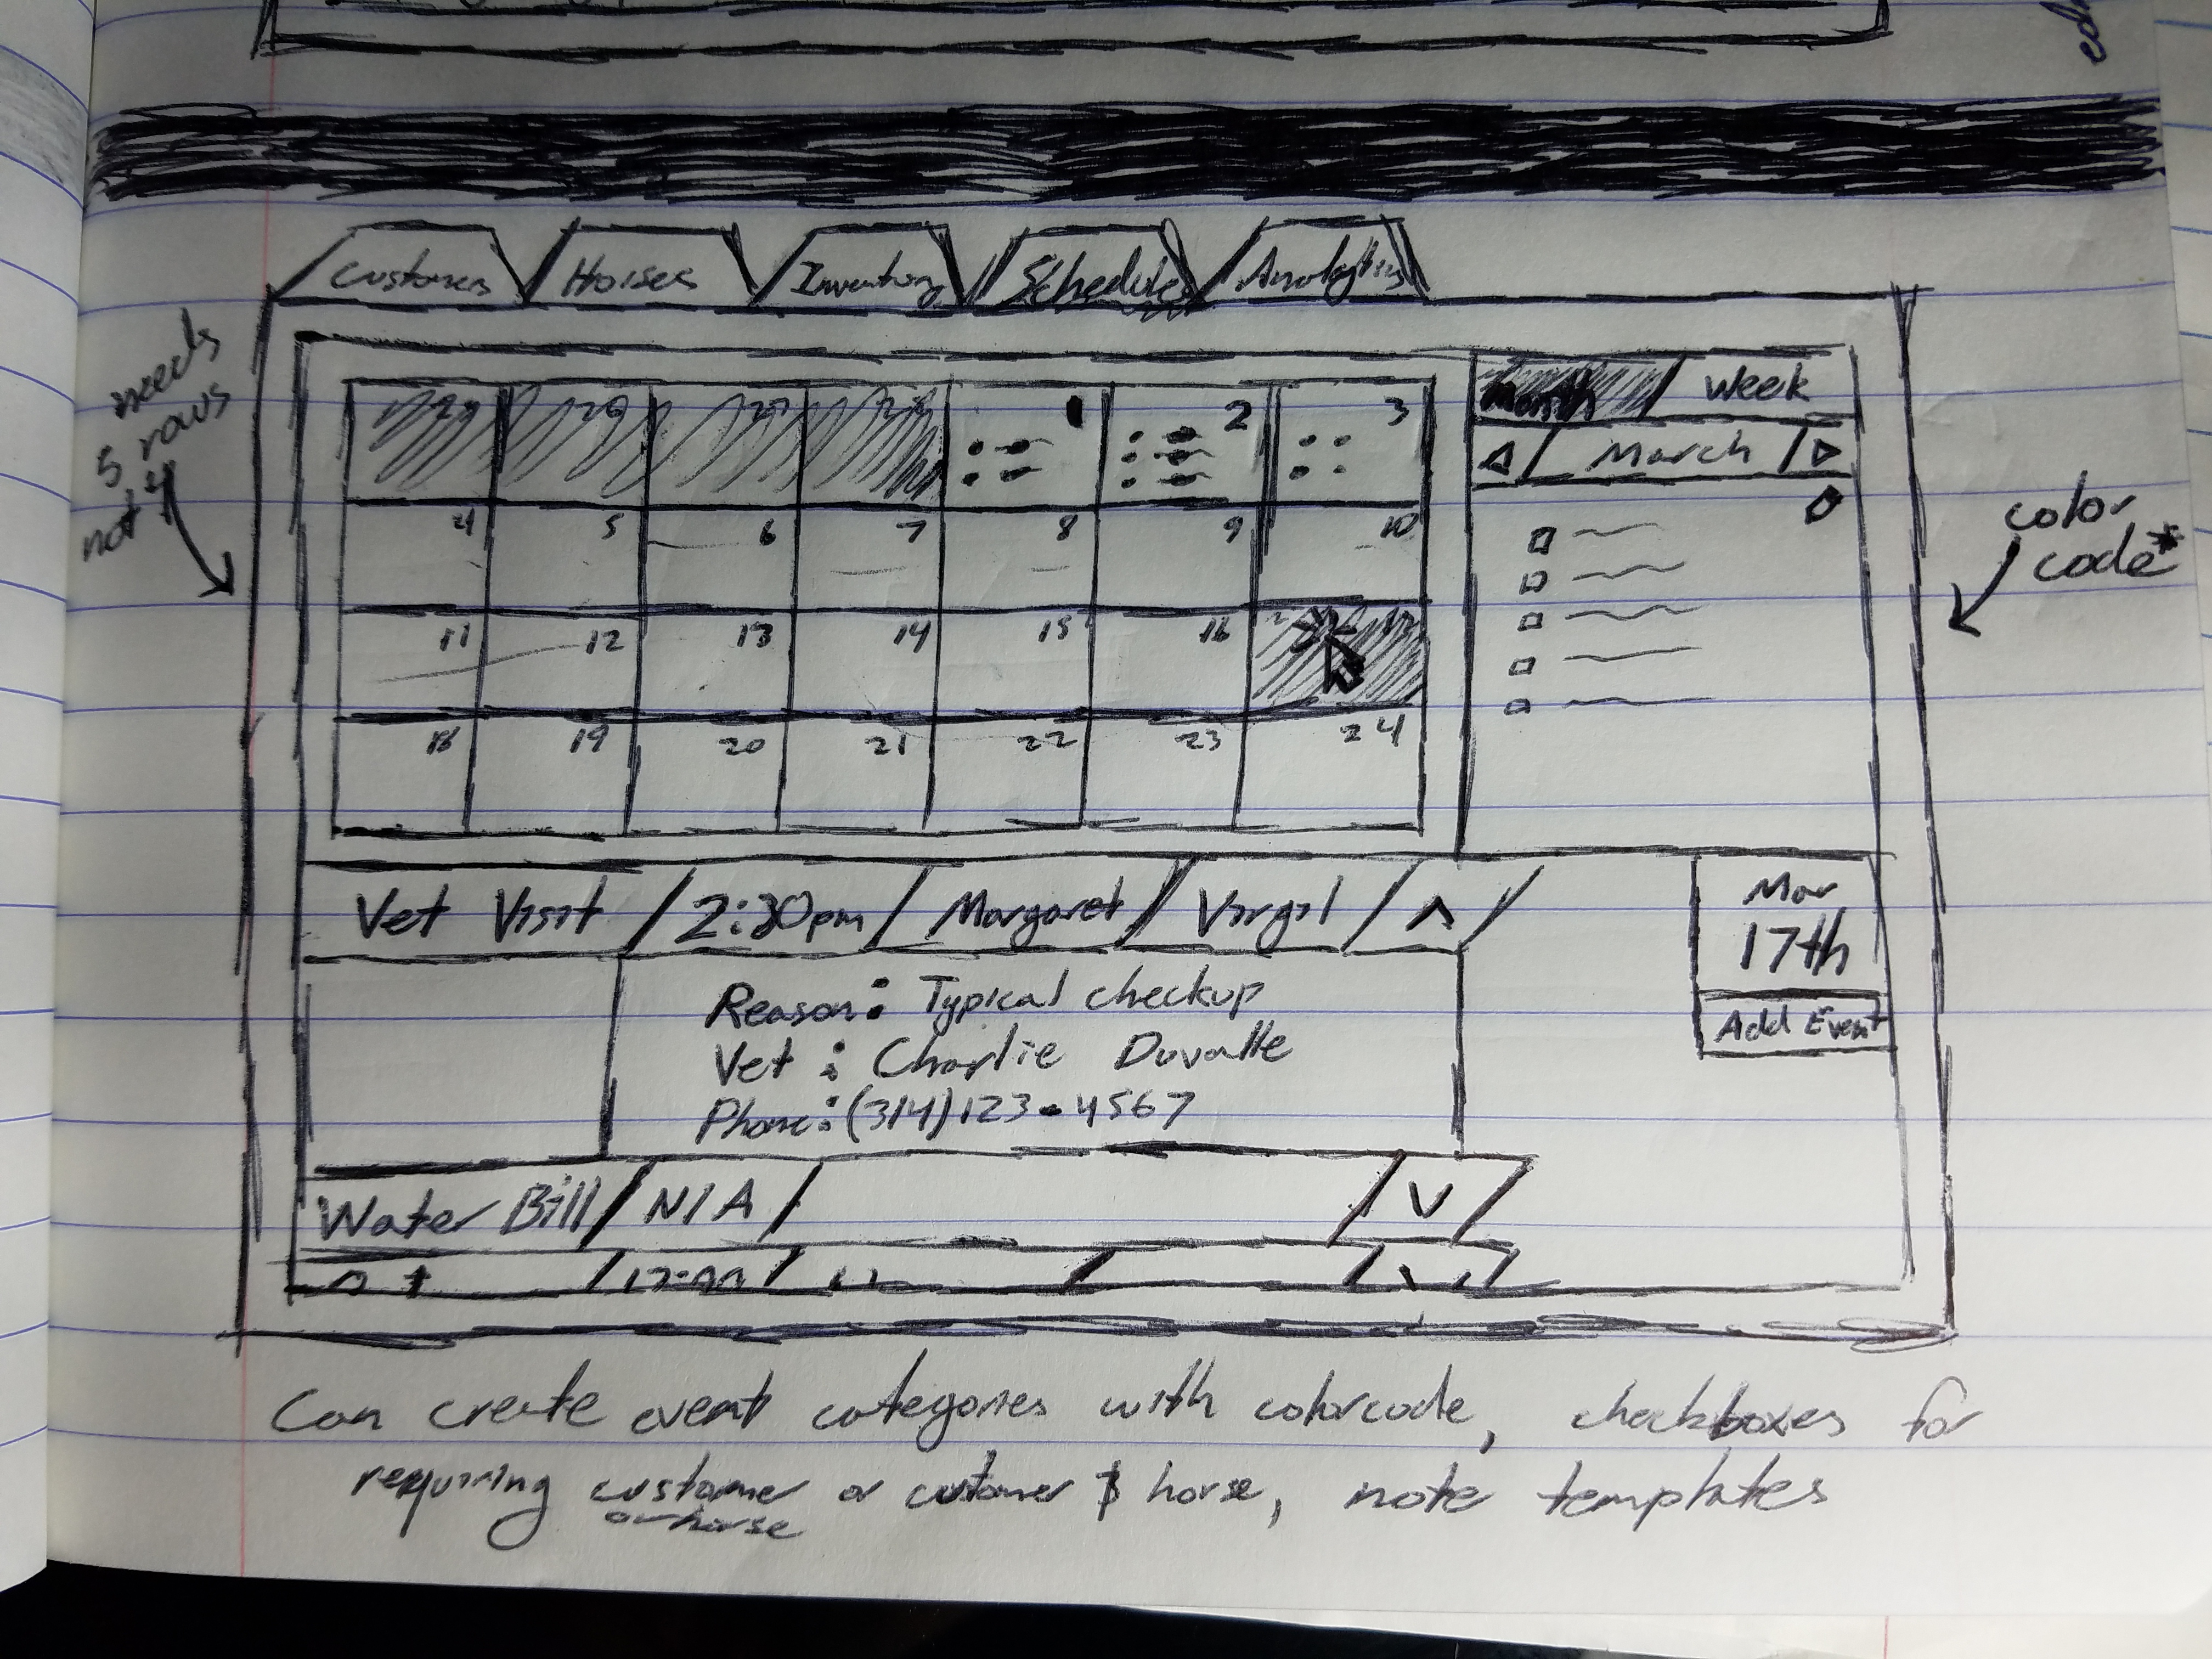 edi
Customers Horses Inventory Schedules Analytics
needs
5 rows
not 4
1 2 3
4 5 6 7 8 9 10
11 12 13 14 15 16 17
18 19 20 21 22 23 24
Month Week
March
color
code*
Vet Visit / 2:30pm / Margaret / Virgil / ^ /
Mar
17th
Add Event
Reason: Typical checkup
Vet: Charlie Duvalle
Phone: (314)123-4567
Water Bill / N/A / / V /
Can create event categories with colorcode, checkboxes for
requiring customer or customer & horse, note templates
or horse